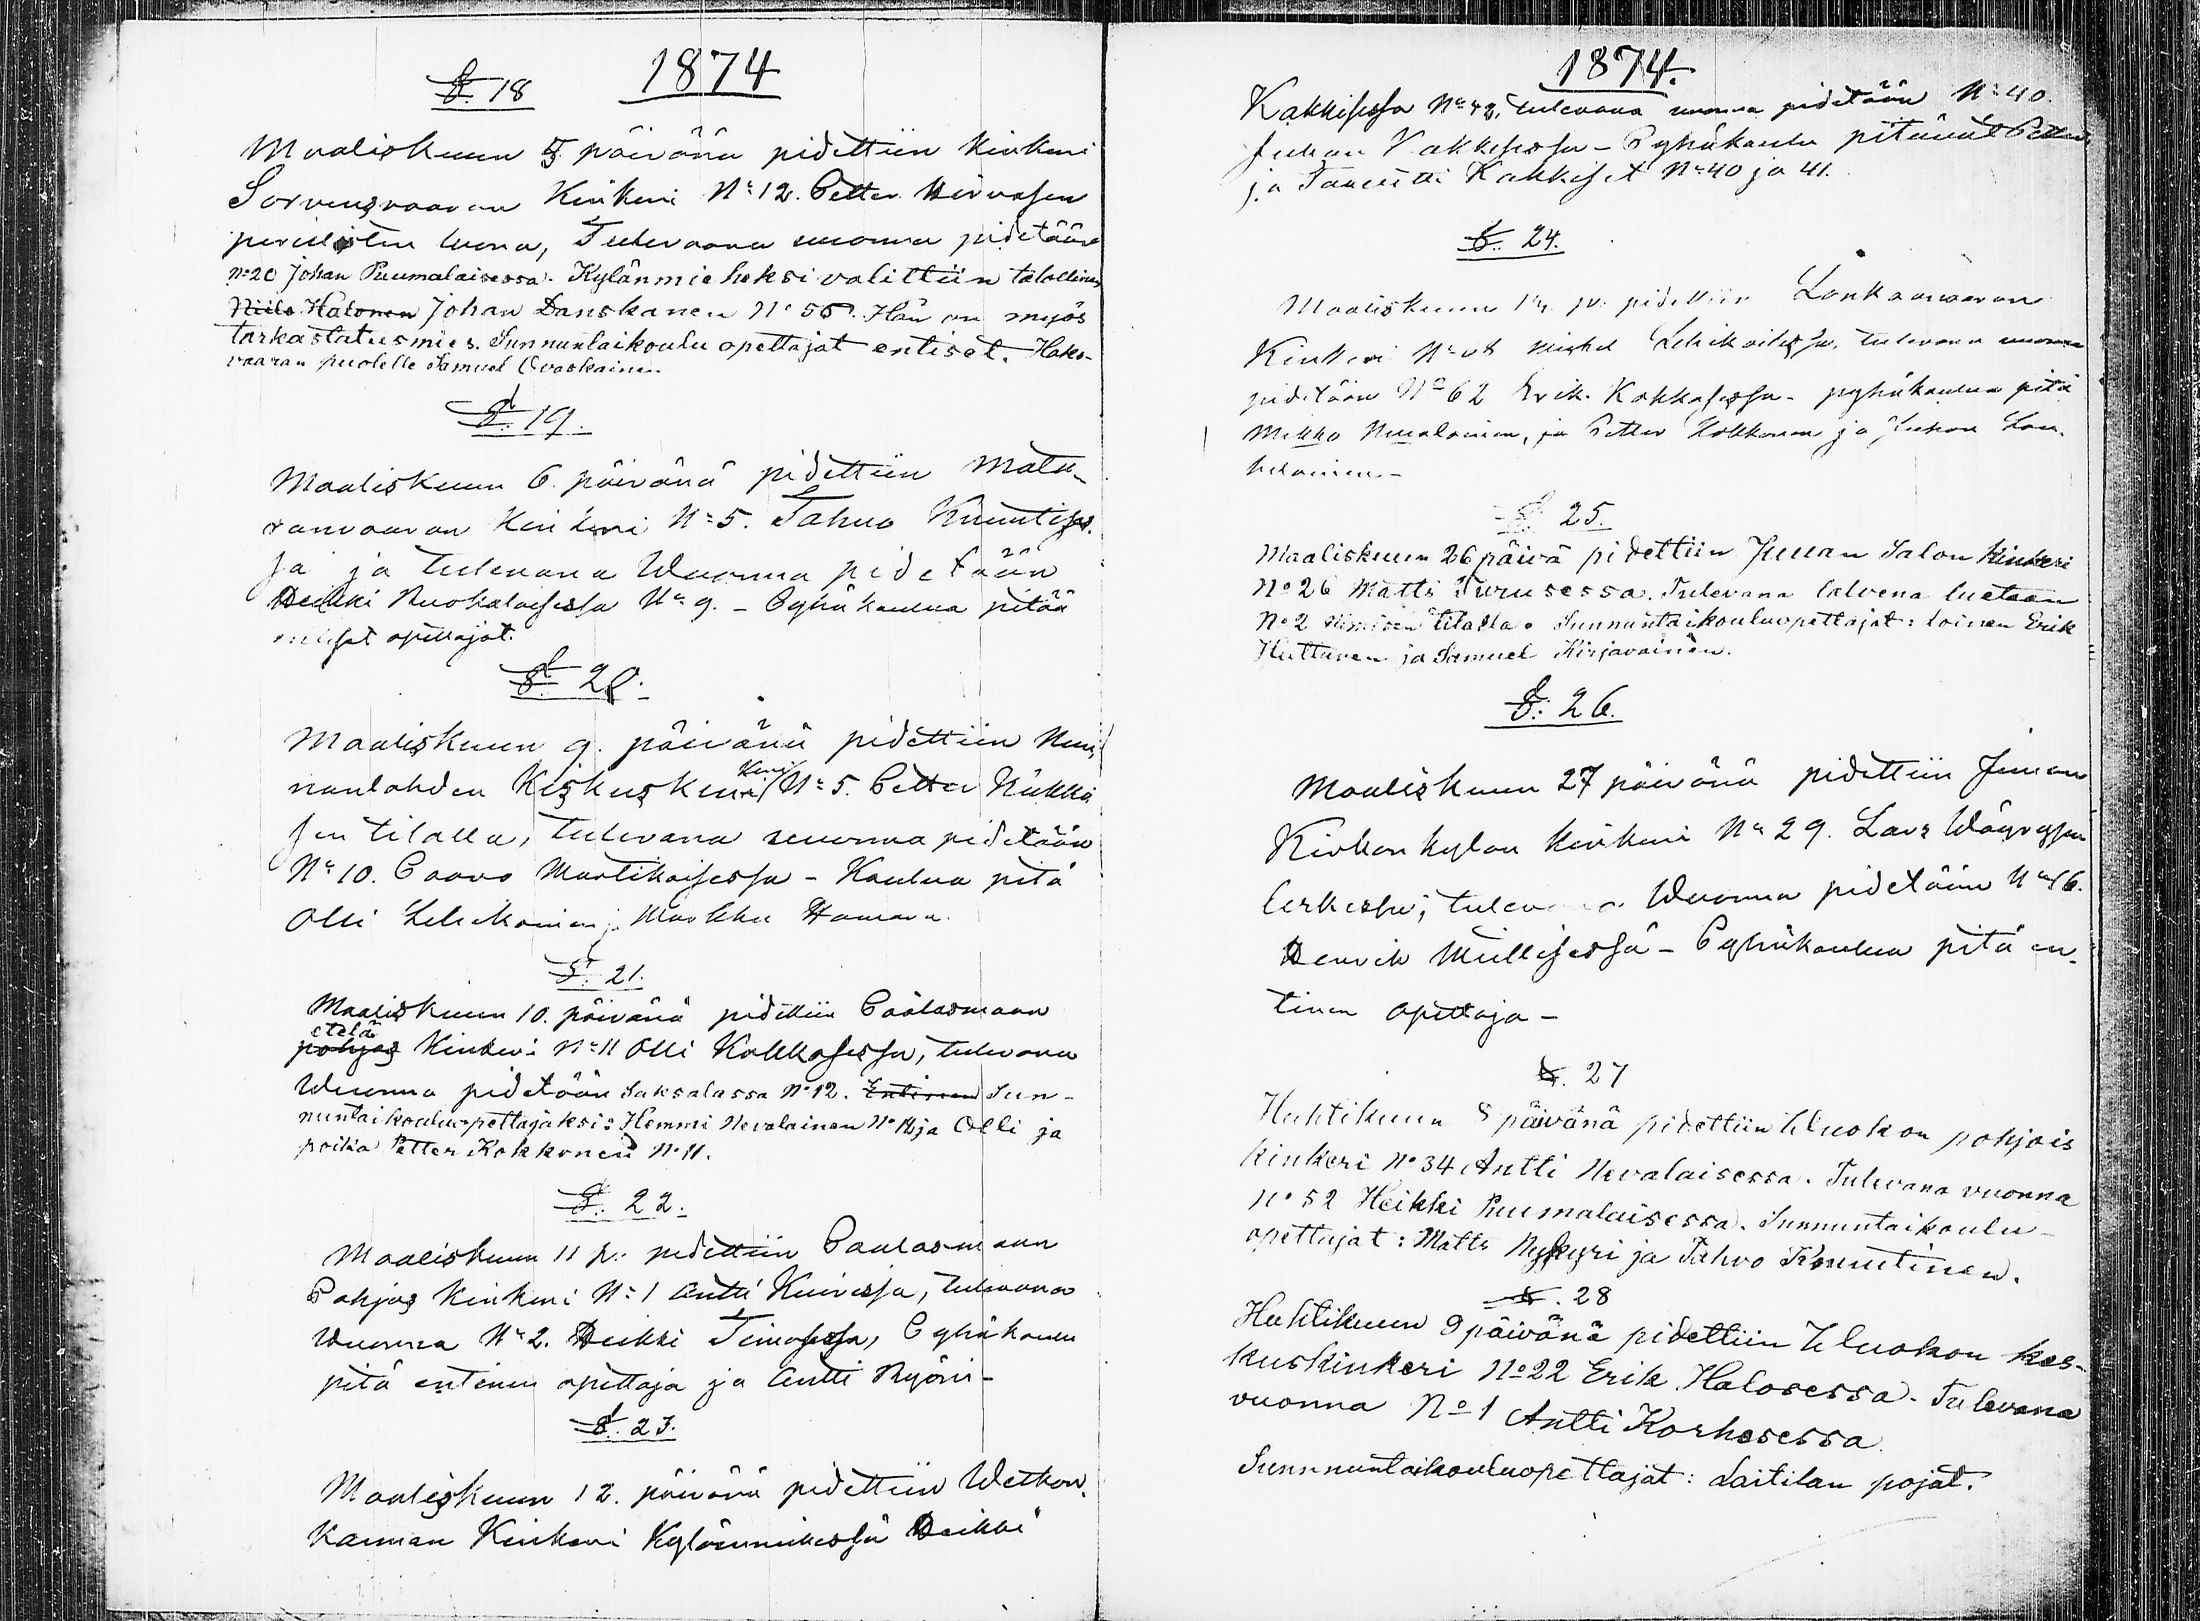 1874
§. 18
Maaliskuun 5 päivänä pidettiin kinkeri
Sarvingvaaran Kinkeri N:12. Petter Hirvosen
perillisten luona, Tulevaana vuonna pidetään
No 20 Johan Puumalaisessa. Kylänmieheksi valittiin talollinen
Niilo Halonen Johan Danskanen No 56. Hän on myös
tarkastatusmies. Sunnuntaikoulu opettajat entiset. Hako-
vaaran puolelle Samuel Ovaskainen
§. 19.
Maaliskuun 6. päivänä pidettiin Mata-
ranvaaran Kinkeri N:5. Tahvo Knuutises-
sa ja tulevana Wuonna pidetään
Heikki Ruokolaisessa No 9. – Pyhäkoulua pitää
entiset opettajat.
§. 20.
Maaliskuun 9. päivänä pidettiin Nun-
nanlahden Keskuskinkeri N:5. Petter Näkki
sen tilalla, tulevana vuonna pidetään
No 10. Paavo Martikaisessa – Koulua pitä
Olli Lehikoinen ja Markku
§. 21.
Maaliskuun 10. päivänä pidettiin Paalasmaan
etelä
pohjas Kinkeri No 11 Olli Kokkosessa, tulevana
Wuonna pidetään Saksalassa No 12. Entinen Sun-
nuntaikouluopettajaksi: Hemmi Nevalainen No 14 ja Olli ja
poika Petter Kokkonen No 11.
§. 22.
Maaliskuun 11 p: pidettiin Paalasmaan
Pohjas Kinkeri N:1 Antti Kuivissa, tulevana
Wuonna No 2. Heikki Timosessa, Pyhäkoulu
pitä entinen opettaja ja Antti Ryöni –
§. 23.
Maaliskuun 12. päivänä pidettiin Wetkon-
kaiman Kinkeri Kylänmiehessä Heikki
1874.
Kakkisessa No 42, tulevana vuonna pidetään No 40.
Juhan Kakkisessa – Pyhäkoulu pitävät Petter
ja Taavetti Kakkiset No 40 ja 41.
§. 24.
Maaliskuun pv. pidettiin Lönkaanvaaran
Kinkeri Mishel Lehikoisessa, tulevana vuonna
pidetään No 62 Erik. Kokkosessa – pyhäkoulua pitä
Mikko Nevalainen, ja Petter Kokkonen ja Juhan Lou-
helainen –
§. 25.
Maaliskuun 26 päivä pidettiin Juuan Salon kinkeri
No 26 Matti Turusessa. Tulevana talvena luetaan
No 2 Nimisen tilalla. Sunnuntaikouluopettajat: loinen Erik
Huttunen ja Samuel Kirjavainen.
§. 26.
Maaliskuun 27 päivänä pidettiin Juuan
Kirkonkylän kinkeri No 29. Lars Wäyrysen
leskessä, tulevana Wuonna pidetään No 46.
Henrik Mullisessä – Pyhäkoulua pitä en-
tinen opettaja –
§. 27
Huhtikuun 8 päivänä pidettiin Uluokon pohjois
kinkeri No 34 Antti Nevalaisessa. Tulevana vuonna
No 52 Heikki Puumalaisessa. Sunnuntaikoulu-
opettajat: Matti Nykyri ja Tahvo Knuutinen.
§. 28
Huhtikuun 9 päivänä pidettiin Uluokon kes-
kuskinkeri No 22 Erik Halosessa. Tulevana
vuonna No 1 Antti Korhosessa.
Sunnnuntaikouluopettajat: Laitilan pojat.